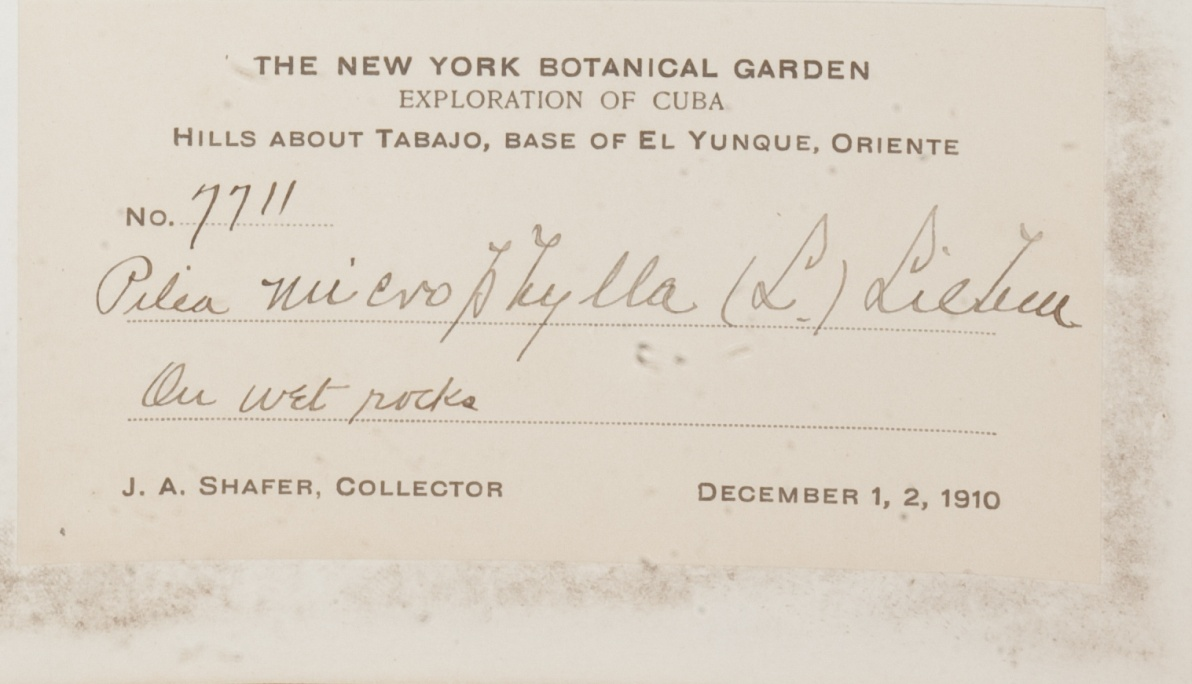 THE NEW YORK BOTANICAL GARDEN
EXPLORATION OF CUBA
HILLS ABOUT TABAJO, BASE OF EL YUNQUE, ORIENTE
No. 7711
Pilea microphylla (L.) Liebm
On wet rocks
J. A. SHAFER, COLLECTOR
DECEMBER 1, 2, 1910